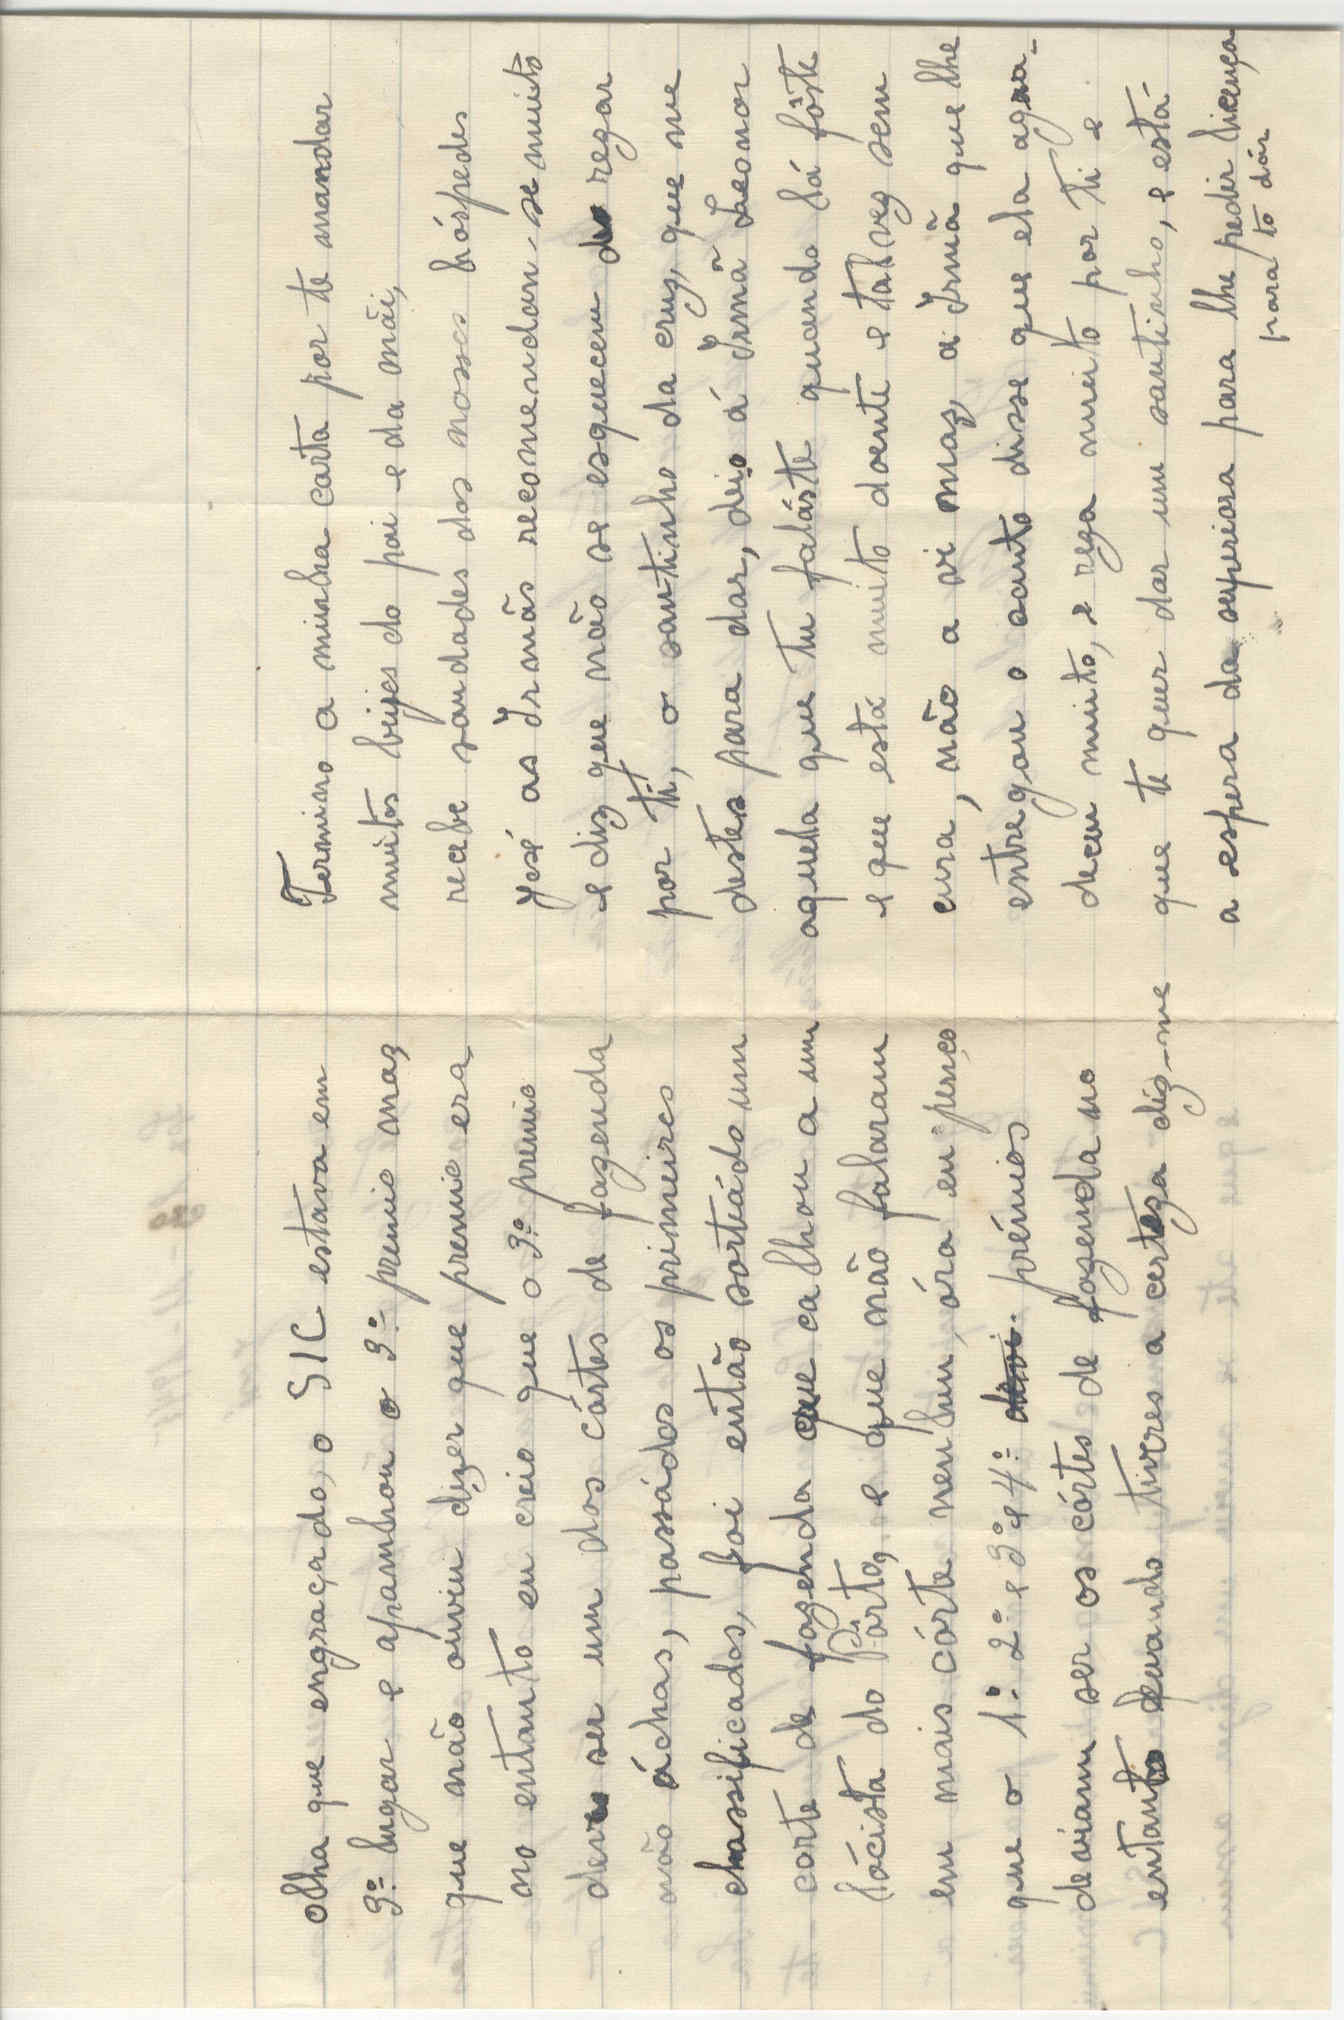 Olha que engraçado, o SIC estava em
3º lugar e apanhou o 3º premio maz
que não ouviu dizer que premio era
no entanto eu creio que o 3º premio
deve ser um dos córtes de fazenda
não áchas, passádos os primeiros
classificados, foi então sortiádo um
corte de fazenda que calhou a um
lócista do Porto, e que não falaram
em mais córte nenhum, óra eu penço
que o 1º 2º e 3º e 4º prémios
deviam ser os córtes de fazenda no
entanto quando tiveres a certeza diz-me
Termino a minha carta por te mandar
muitos beijos do pai e da mãi,
recebe saudades dos nossos hóspedes
José as Irmãs recomendam-se muito
e diz que não se esquecem de rezar
por ti, o santinho da cruz, que me
destes para dar, dei-o á Irmã Leonor
aquela que tu faláste quando lá fôste
e que está muito doente e talvez sem
cura, não a vi maz, a Irmã que lhe
entregou o santo disse que ela agra-
deceu muito, e reza muito por ti e
que te quer dar um santinho, e está
a espera da superiora para lhe pedir licença
para to dár